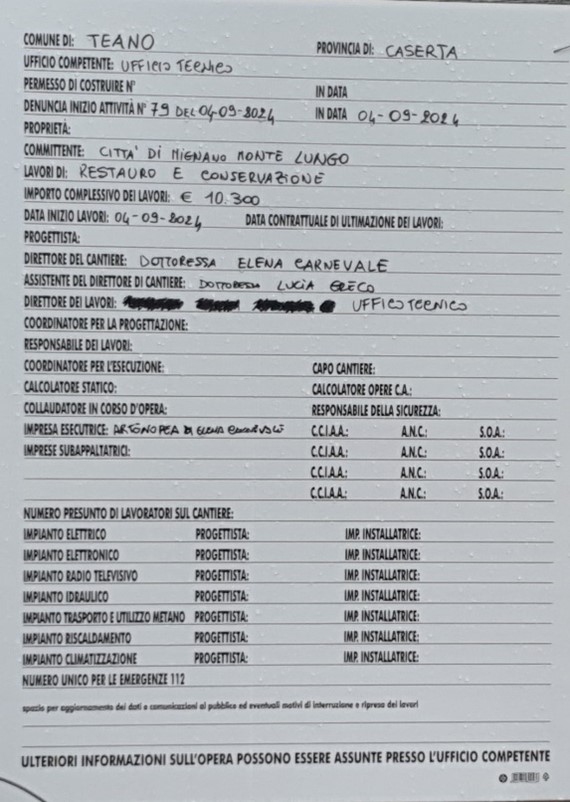 COMUNE DI: TEANO PROVINCIA DI: CASERTA
UFFICIO COMPETENTE: UFFICIO TECNICO
PERMESSO DI COSTRUIRE N° IN DATA
DENUNCIA INIZIO ATTIVITÀ N° 79 DEL 04-09-2024 IN DATA 04-09-2024
PROPRIETÀ:
COMMITTENTE: CITTA' DI MIGNANO MONTE LUNGO
LAVORI DI: RESTAURO E CONSERVAZIONE
IMPORTO COMPLESSIVO DEI LAVORI: € 10.300
DATA INIZIO LAVORI: 04-09-2024 DATA CONTRATTUALE DI ULTIMAZIONE DEI LAVORI:
PROGETTISTA:
DIRETTORE DEL CANTIERE: DOTTORESSA ELENA CARNEVALE
ASSISTENTE DEL DIRETTORE DI CANTIERE: DOTTORESSA LUCIA GRECO
DIRETTORE DEI LAVORI: UFFICIO TECNICO
COORDINATORE PER LA PROGETTAZIONE:
RESPONSABILE DEI LAVORI:
COORDINATORE PER L'ESECUZIONE: CAPO CANTIERE:
CALCOLATORE STATICO: CALCOLATORE OPERE C.A.:
COLLAUDATORE IN CORSO D'OPERA: RESPONSABILE DELLA SICUREZZA:
IMPRESA ESECUTRICE: DI ELENA CARNEVALE C.C.I.A.A.: A.N.C.: S.O.A.:
IMPRESE SUBAPPALTATRICI: C.C.I.A.A.: A.N.C.: S.O.A.:
C.C.I.A.A.: A.N.C.: S.O.A.:
C.C.I.A.A.: A.N.C.: S.O.A.:
NUMERO PRESUNTO DI LAVORATORI SUL CANTIERE:
IMPIANTO ELETTRICO PROGETTISTA: IMP. INSTALLATRICE:
IMPIANTO ELETTRONICO PROGETTISTA: IMP. INSTALLATRICE:
IMPIANTO RADIO TELEVISIVO PROGETTISTA: IMP. INSTALLATRICE:
IMPIANTO IDRAULICO PROGETTISTA: IMP. INSTALLATRICE:
IMPIANTO TRASPORTO E UTILIZZO METANO PROGETTISTA: IMP. INSTALLATRICE:
IMPIANTO RISCALDAMENTO PROGETTISTA: IMP. INSTALLATRICE:
IMPIANTO CLIMATIZZAZIONE PROGETTISTA: IMP. INSTALLATRICE:
NUMERO UNICO PER LE EMERGENZE 112
spazio per aggiornamento dei dati e comunicazioni al pubblico ed eventuali motivi di interruzione e ripresa dei lavori
ULTERIORI INFORMAZIONI SULL'OPERA POSSONO ESSERE ASSUNTE PRESSO L'UFFICIO COMPETENTE